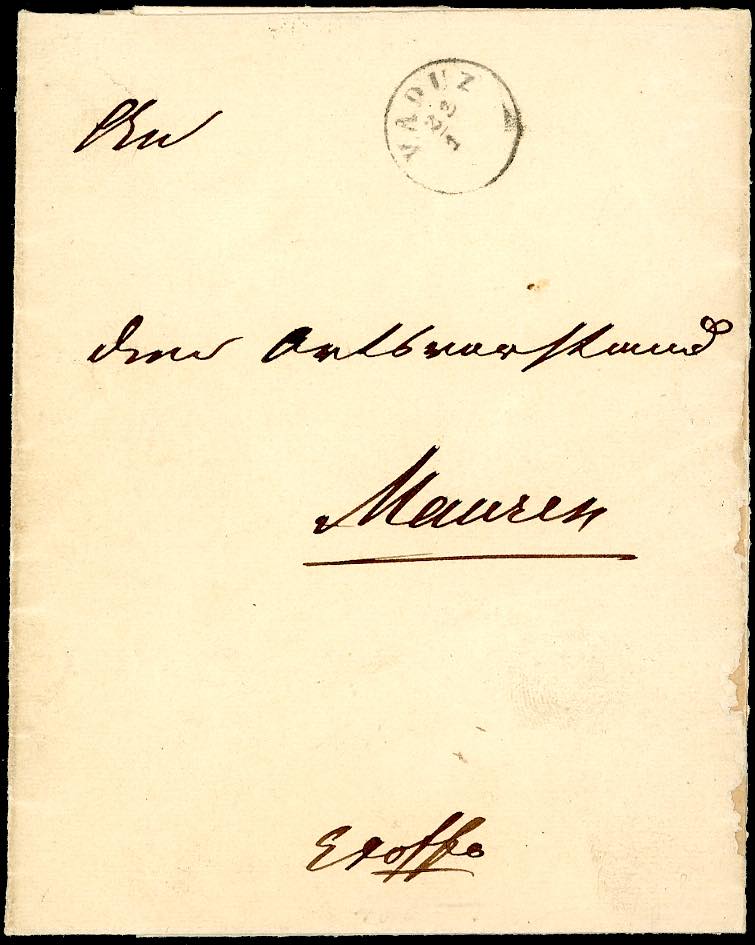 VADUZ
23/7
An
den Ortsvorstand
Mauren
Exoffo